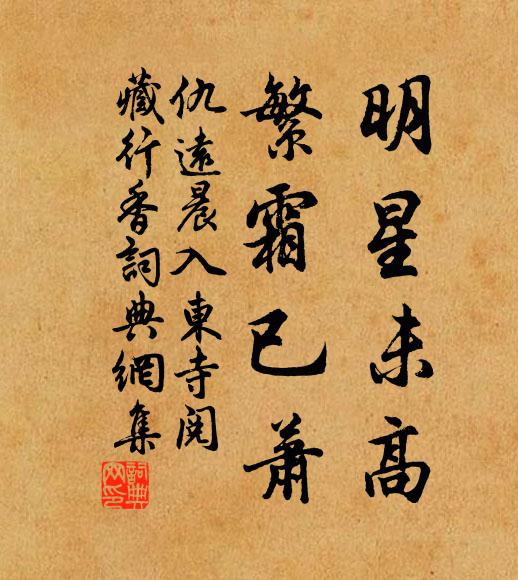 明星未高
繁霜已蕭
仇遠晨入東寺閱
藏行香詞典網集